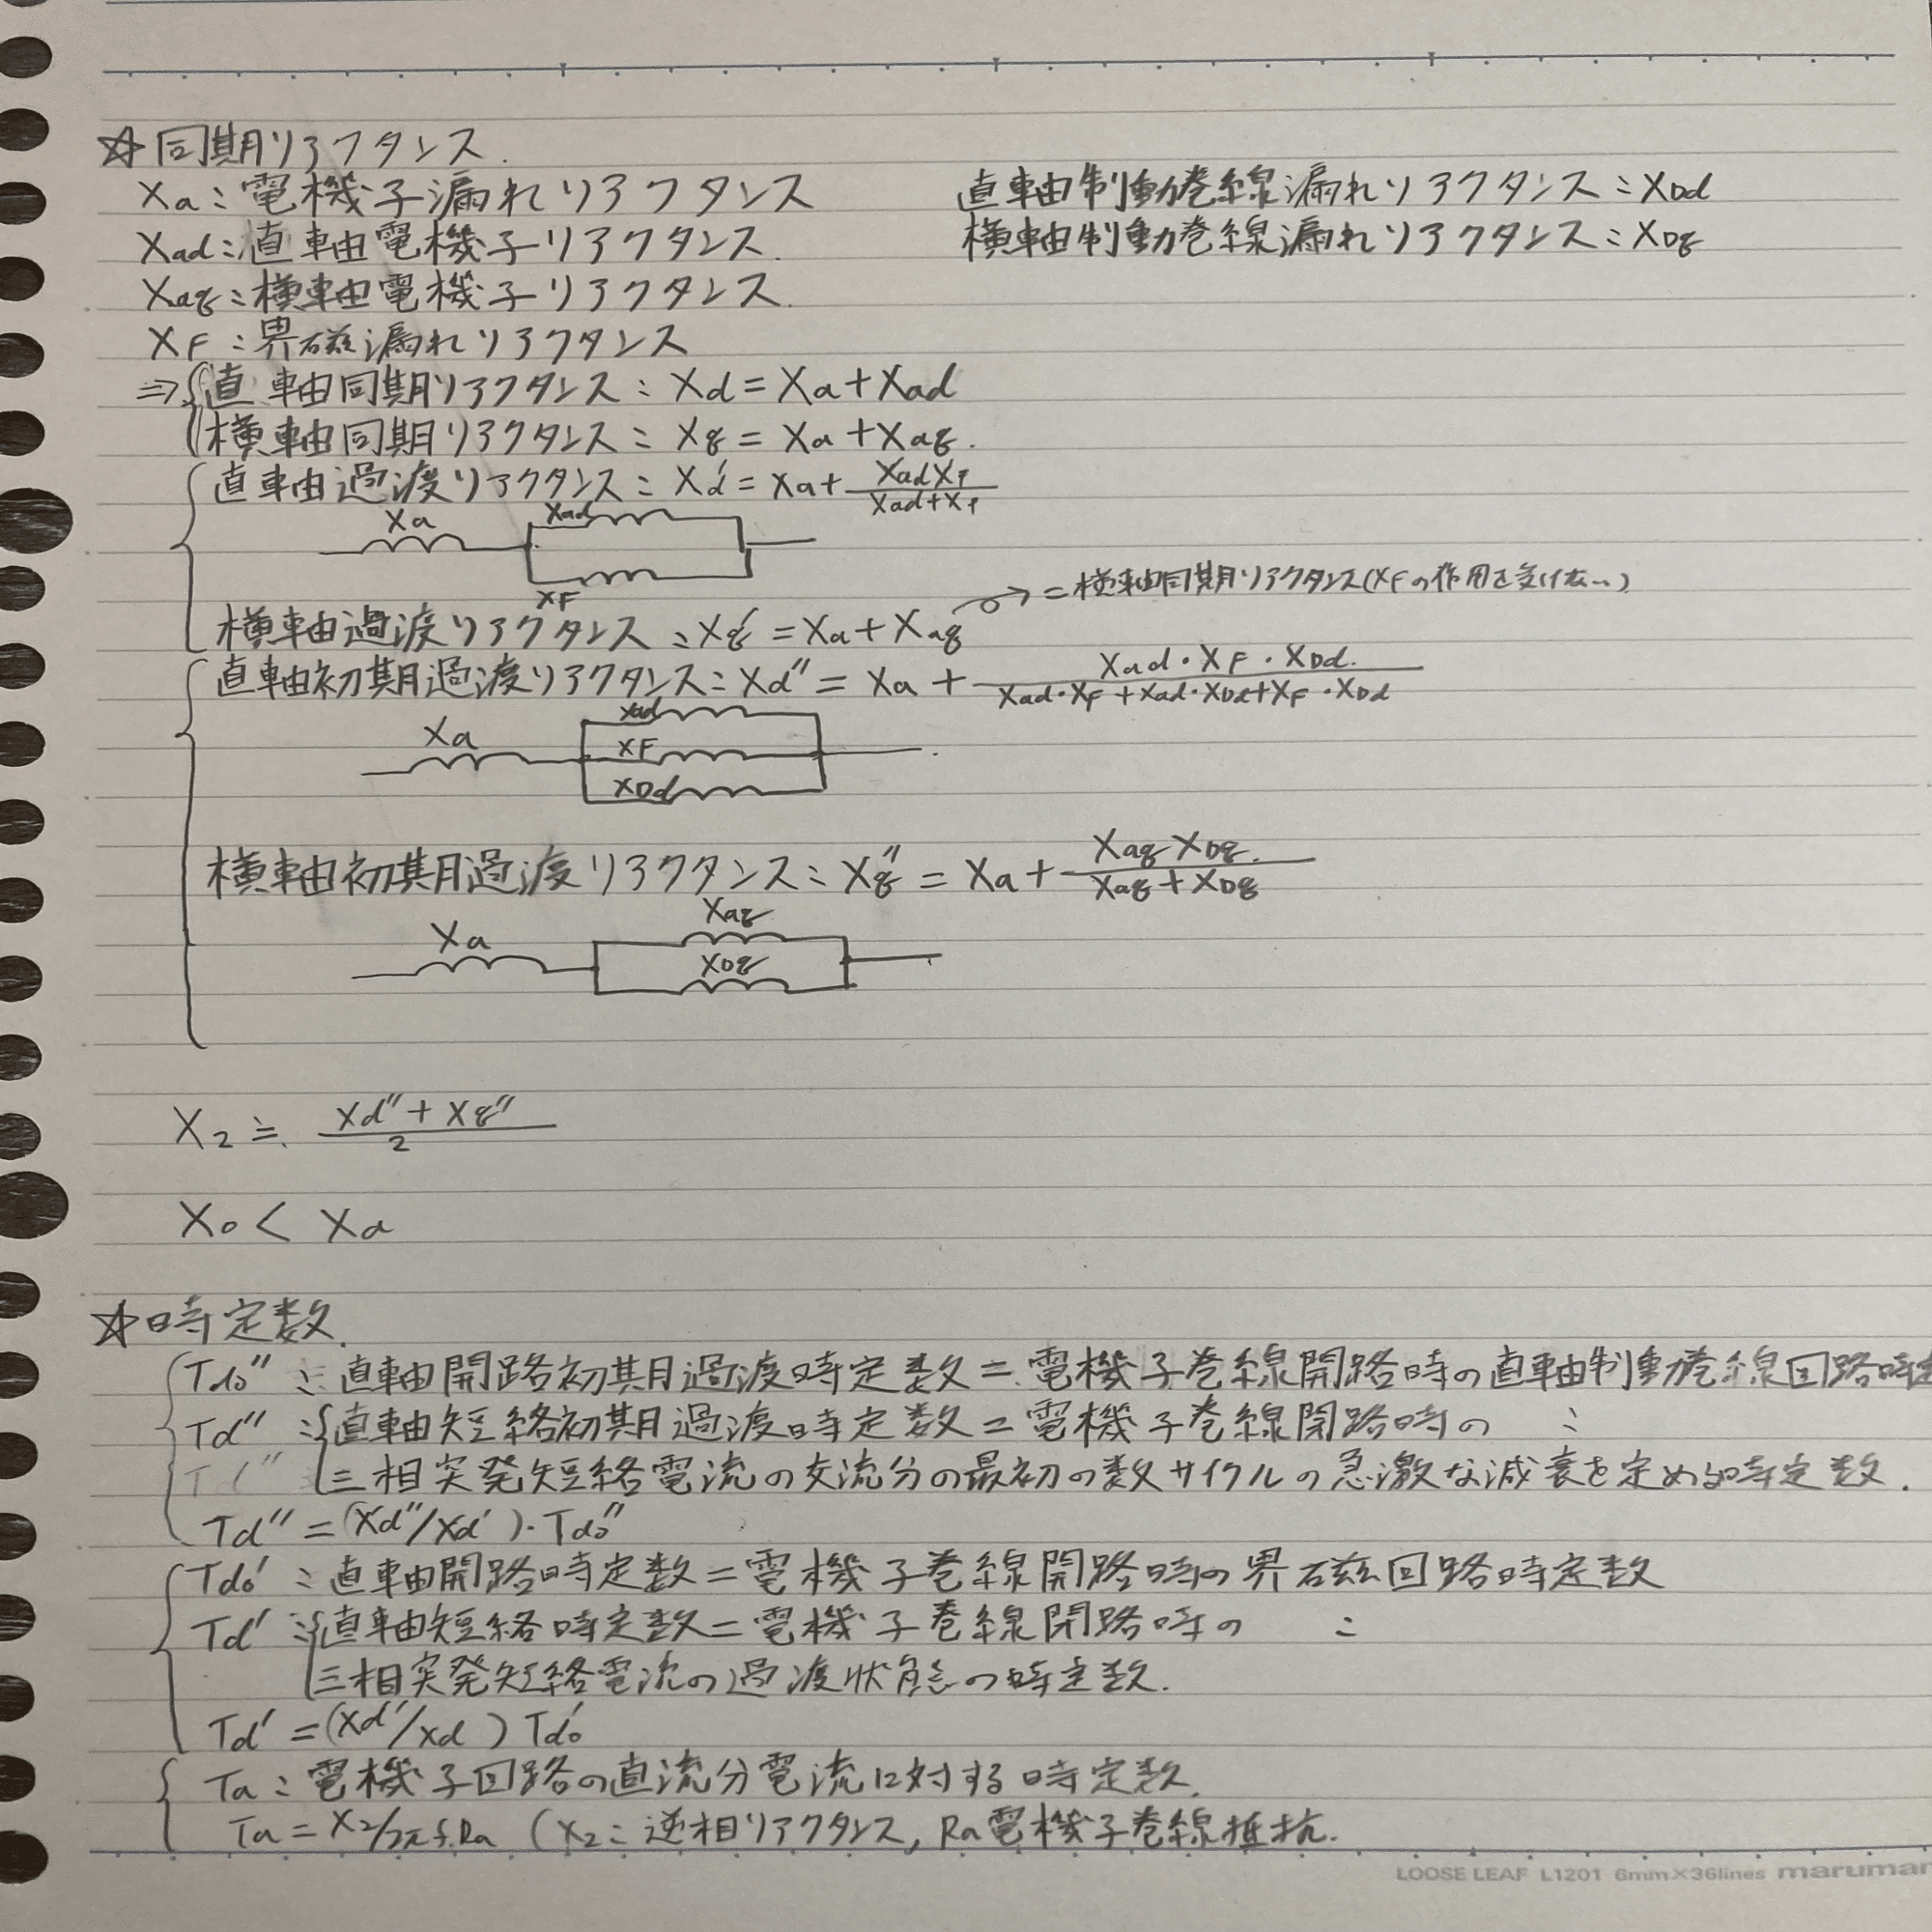 ☆同期リアクタンス.
Xa：電機子漏れリアクタンス
Xad：直軸電機子リアクタンス.
Xaq：横軸電機子リアクタンス.
XF：界磁漏れリアクタンス
直軸制動巻線漏れリアクタンス：XDd
横軸制動巻線漏れリアクタンス：XDq
⇒ 直軸同期リアクタンス：Xd = Xa + Xad
横軸同期リアクタンス：Xq = Xa + Xaq.
直軸過渡リアクタンス：Xd' = Xa + XadXF / Xad+XF
Xa Xad
XF
横軸過渡リアクタンス：Xq' = Xa + Xaq → = 横軸同期リアクタンス(XFの作用を受けない)
直軸初期過渡リアクタンス：Xd'' = Xa + Xad・XF・XDd. / Xad・XF + Xad・XDd + XF・XDd
Xa Xad
XF
XDd
横軸初期過渡リアクタンス：Xq'' = Xa + XaqXDq. / Xaq + XDq
Xa Xaq
XDq
X2 ≒ Xd'' + Xq'' / 2
X0 < Xa
☆時定数.
Tdo''：直軸開路初期過渡時定数 = 電機子巻線開路時の直軸制動巻線回路時定
Td''：直軸短絡初期過渡時定数 = 電機子巻線閉路時の 〃
三相突発短絡電流の交流分の最初の数サイクルの急激な減衰を定める時定数.
Td'' = (Xd''/Xd')・Tdo''
Tdo'：直軸開路時定数 = 電機子巻線開路時の界磁回路時定数
Td'：直軸短絡時定数 = 電機子巻線閉路時の 〃
三相突発短絡電流の過渡状態の時定数.
Td' = (Xd'/Xd) Tdo'
Ta：電機子回路の直流分電流に対する時定数.
Ta = X2/2πf.Ra (X2：逆相リアクタンス, Ra電機子巻線抵抗.
LOOSE LEAF L1201 6mm×36lines maruman